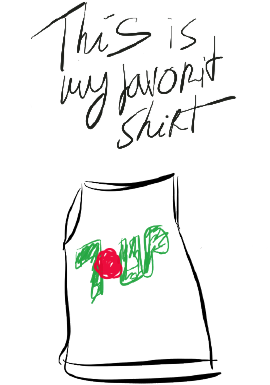 This is
my favorit
shirt
7UP